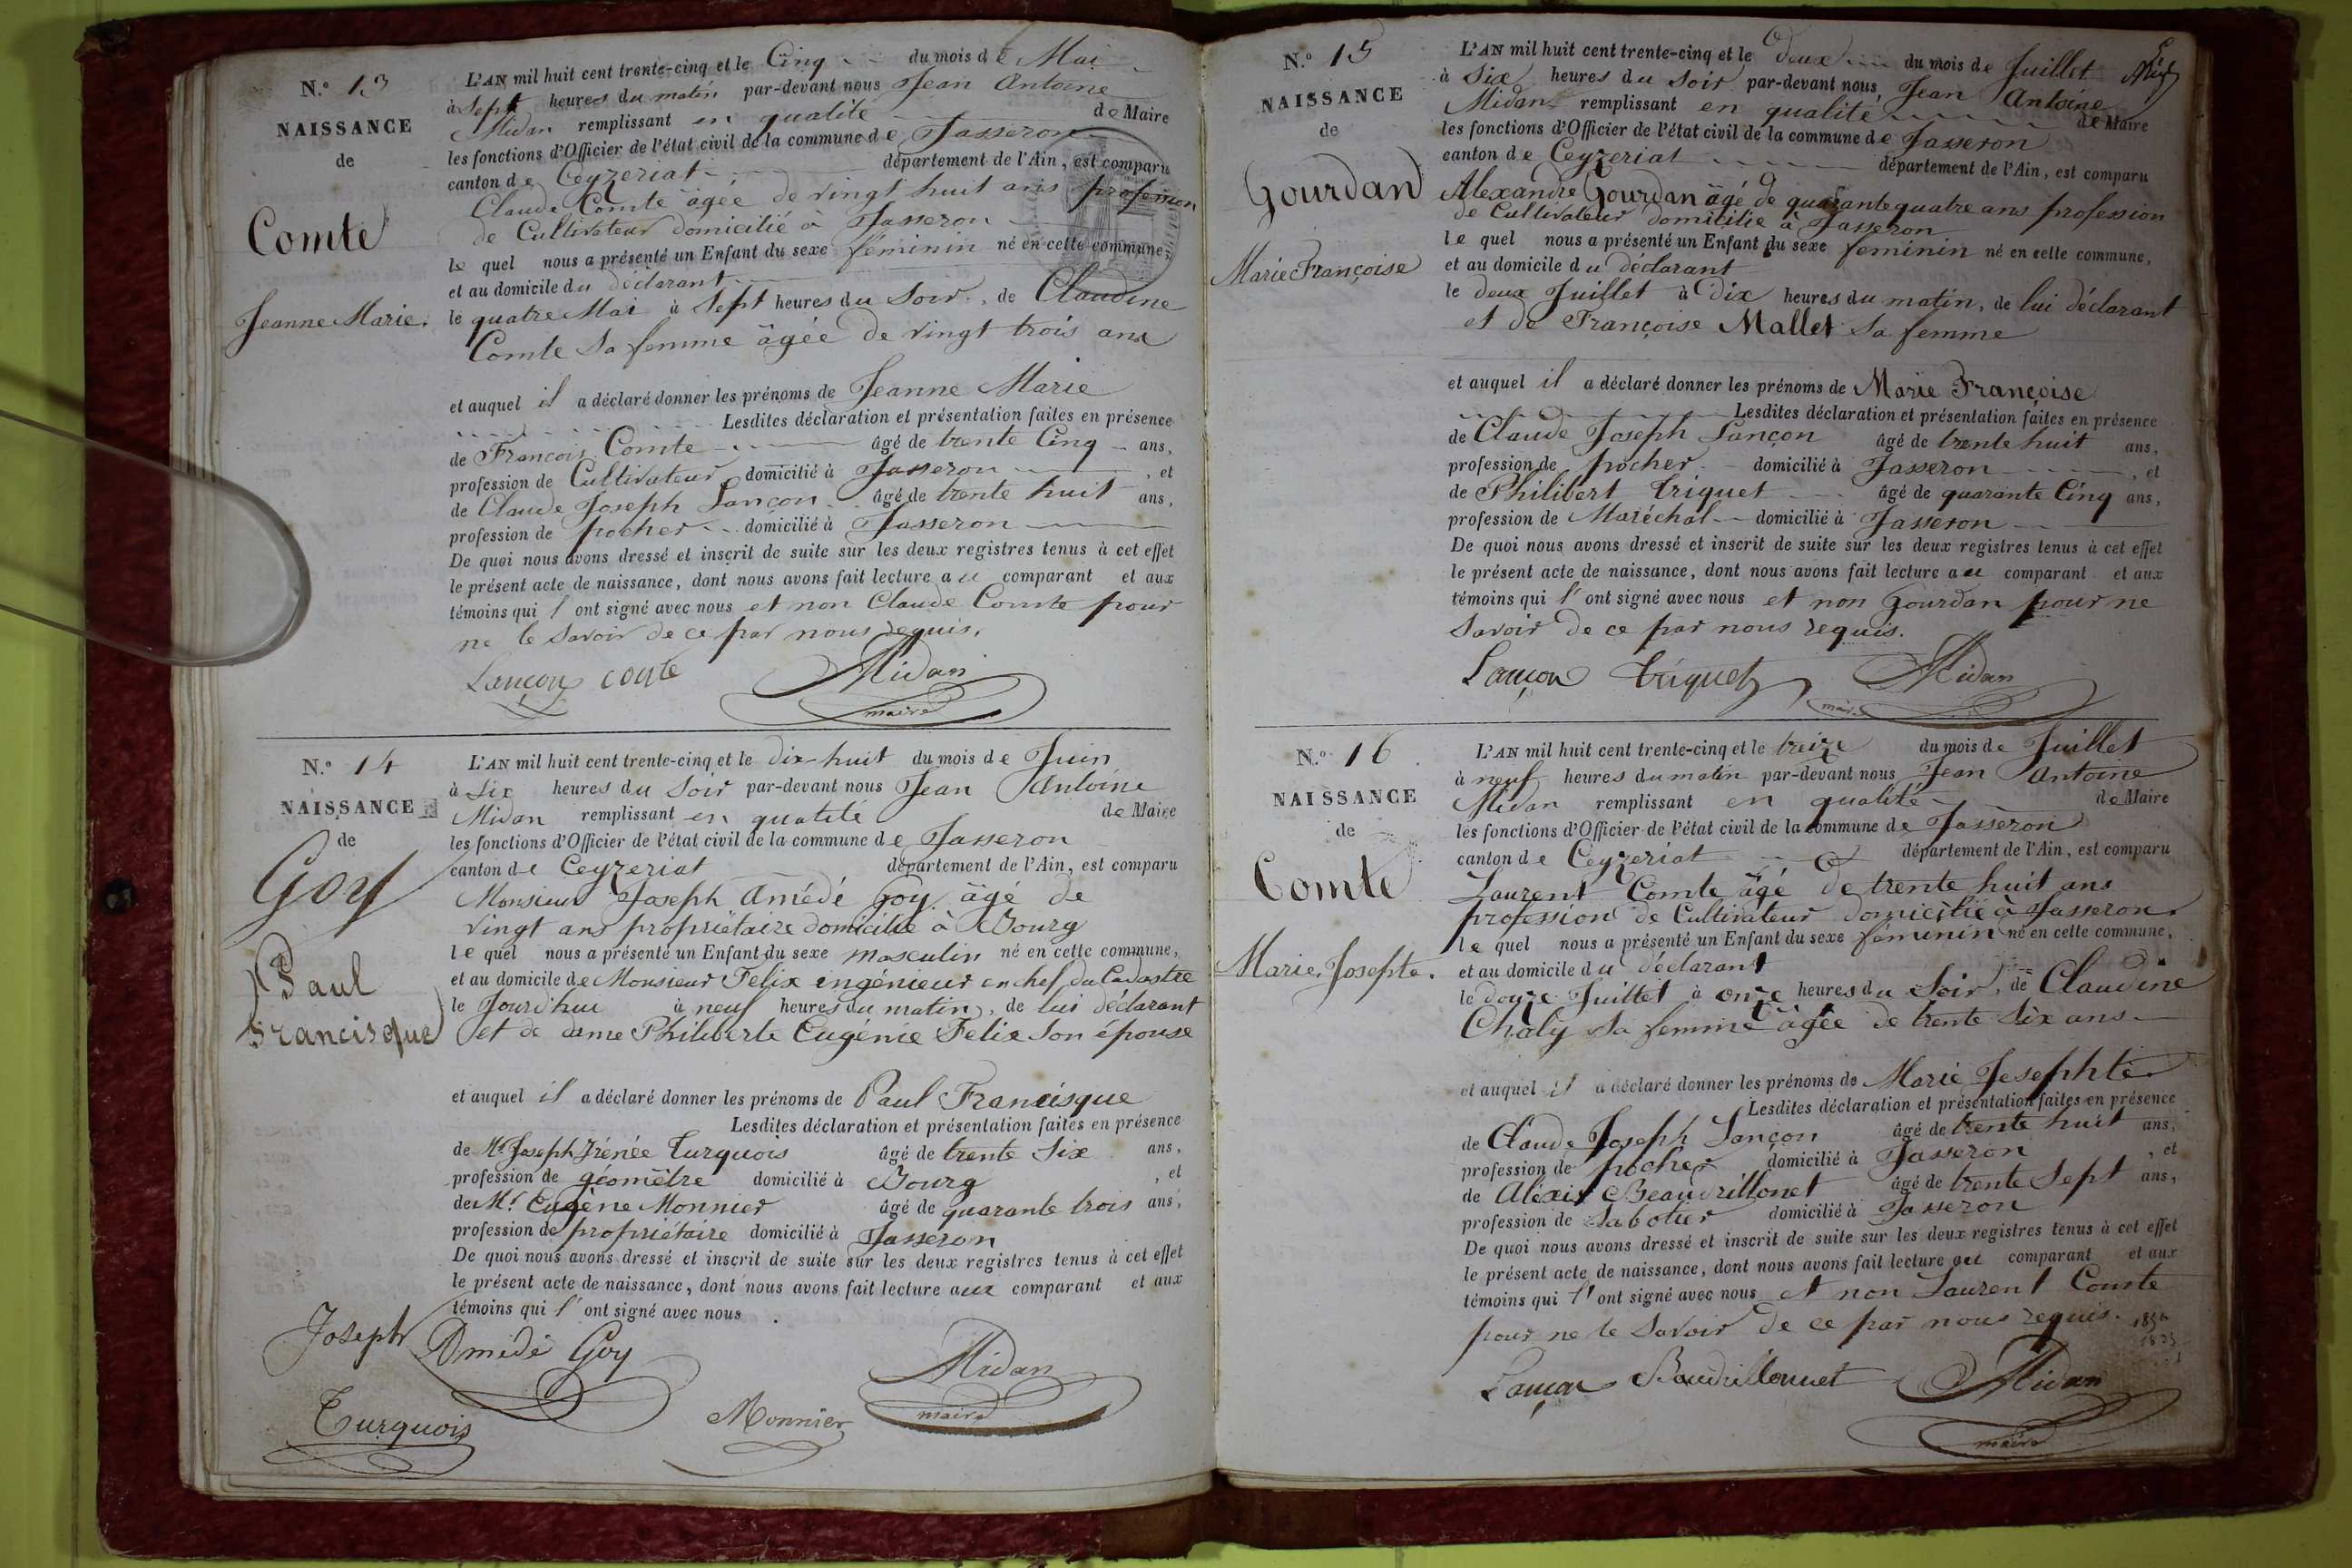 N.º 13
NAISSANCE
de
Comte
Jeanne Marie.
L'AN mil huit cent trente-cinq et le Cinq du mois de Mai
à Sept heures du matin par-devant nous Jean Antoine
Midan remplissant en qualité de Maire
les fonctions d'Officier de l'état civil de la commune de Jasseron
canton de Ceyzeriat département de l'Ain, est comparu
Claude Comte âgé de vingt huit ans profession
de Cultivateur domicilié à Jasseron
le quel nous a présenté un Enfant du sexe féminin né en cette commune,
et au domicile du déclarant
le quatre Mai à Sept heures du Soir, de Claudine
Comte Sa femme âgée de vingt trois ans
et auquel il a déclaré donner les prénoms de Jeanne Marie
Lesdites déclaration et présentation faites en présence
de François Comte âgé de trente Cinq ans,
profession de Cultivateur domicilié à Jasseron, et
de Claude Joseph Lançon âgé de trente huit ans,
profession de pocher domicilié à Jasseron
De quoi nous avons dressé et inscrit de suite sur les deux registres tenus à cet effet
le présent acte de naissance, dont nous avons fait lecture au comparant et aux
témoins qui l'ont signé avec nous et non Claude Comte pour
ne le Savoir de ce par nous requis.
Lançon conte Midan
maire
N.º 14
NAISSANCE
de
Goy
Paul
Francisque
L'AN mil huit cent trente-cinq et le dix-huit du mois de Juin
à Six heures du Soir par-devant nous Jean Antoine
Midan remplissant en qualité de Maire
les fonctions d'Officier de l'état civil de la commune de Jasseron
canton de Ceyzeriat département de l'Ain, est comparu
Monsieur Joseph Amédé Goy âgé de
vingt ans propriétaire domicilié à Bourg
le quel nous a présenté un Enfant du sexe masculin né en cette commune,
et au domicile de Monsieur Felix ingénieur en chef du Cadastre
le Jourd'hui à neuf heures du matin, de lui déclarant
et de dame Philiberte Eugénie Felix Son épouse
et auquel il a déclaré donner les prénoms de Paul Francisque
Lesdites déclaration et présentation faites en présence
de Mr Joseph Irénée Turquois âgé de trente Six ans,
profession de géomètre domicilié à Bourg, et
de Mr. Eugène Monnier âgé de quarante trois ans,
profession de propriétaire domicilié à Jasseron
De quoi nous avons dressé et inscrit de suite sur les deux registres tenus à cet effet
le présent acte de naissance, dont nous avons fait lecture aux comparant et aux
témoins qui l'ont signé avec nous.
Joseph Amédé Goy Midan
maire
Turquois Monnier
N.º 15
NAISSANCE
de
Gourdan
Marie Françoise
L'AN mil huit cent trente-cinq et le deux du mois de Juillet
à Six heures du Soir par-devant nous, Jean Antoine
Midan remplissant en qualité de Maire
les fonctions d'Officier de l'état civil de la commune de Jasseron
canton de Ceyzeriat département de l'Ain, est comparu
Alexandre Gourdan âgé de quarante quatre ans profession
de Cultivateur domicilié à Jasseron
le quel nous a présenté un Enfant du sexe féminin né en cette commune,
et au domicile du déclarant
le deux Juillet à Dix heures du matin, de lui déclarant
et de Françoise Mallet Sa femme
et auquel il a déclaré donner les prénoms de Marie Françoise
Lesdites déclaration et présentation faites en présence
de Claude Joseph Lançon âgé de trente huit ans,
profession de pocher domicilié à Jasseron, et
de Philibert Triquet âgé de quarante Cinq ans,
profession de Maréchal domicilié à Jasseron
De quoi nous avons dressé et inscrit de suite sur les deux registres tenus à cet effet
le présent acte de naissance, dont nous avons fait lecture au comparant et aux
témoins qui l'ont signé avec nous et non Gourdan pour ne
Savoir de ce par nous requis.
Lançon triquet Midan
maire
N.º 16
NAISSANCE
de
Comte
Marie Josephte.
L'AN mil huit cent trente-cinq et le treize du mois de Juillet
à neuf heures du matin par-devant nous Jean Antoine
Midan remplissant en qualité de Maire
les fonctions d'Officier de l'état civil de la commune de Jasseron
canton de Ceyzeriat département de l'Ain, est comparu
Laurent Comte âgé de trente huit ans
profession de Cultivateur domicilié à Jasseron.
le quel nous a présenté un Enfant du sexe féminin né en cette commune,
et au domicile du déclarant
le douze Juillet à onze heures du Soir, de Claudine
Chaly Sa femme âgée de trente Six ans
et auquel il a déclaré donner les prénoms de Marie Josephte
Lesdites déclaration et présentation faites en présence
de Claude Joseph Lançon âgé de trente huit ans,
profession de pocher domicilié à Jasseron, et
de Aléxis Beaudrillonet âgé de trente Sept ans,
profession de Sabotier domicilié à Jasseron
De quoi nous avons dressé et inscrit de suite sur les deux registres tenus à cet effet
le présent acte de naissance, dont nous avons fait lecture au comparant et aux
témoins qui l'ont signé avec nous et non Laurent Comte
pour ne le Savoir de ce par nous requis.
Lançon Baudrillonnet Midan
maire